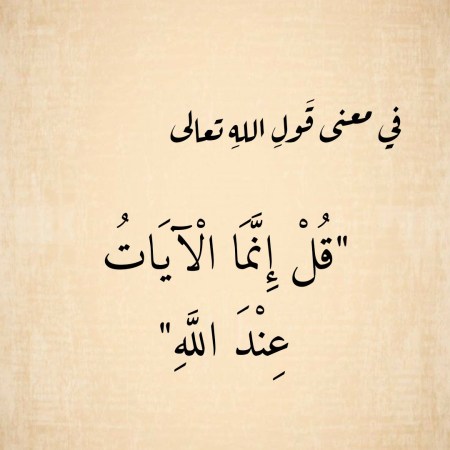 في معنى قَولِ اللهِ تعالى
"قُلْ إِنَّمَا الْآيَاتُ
عِنْدَ اللَّهِ"